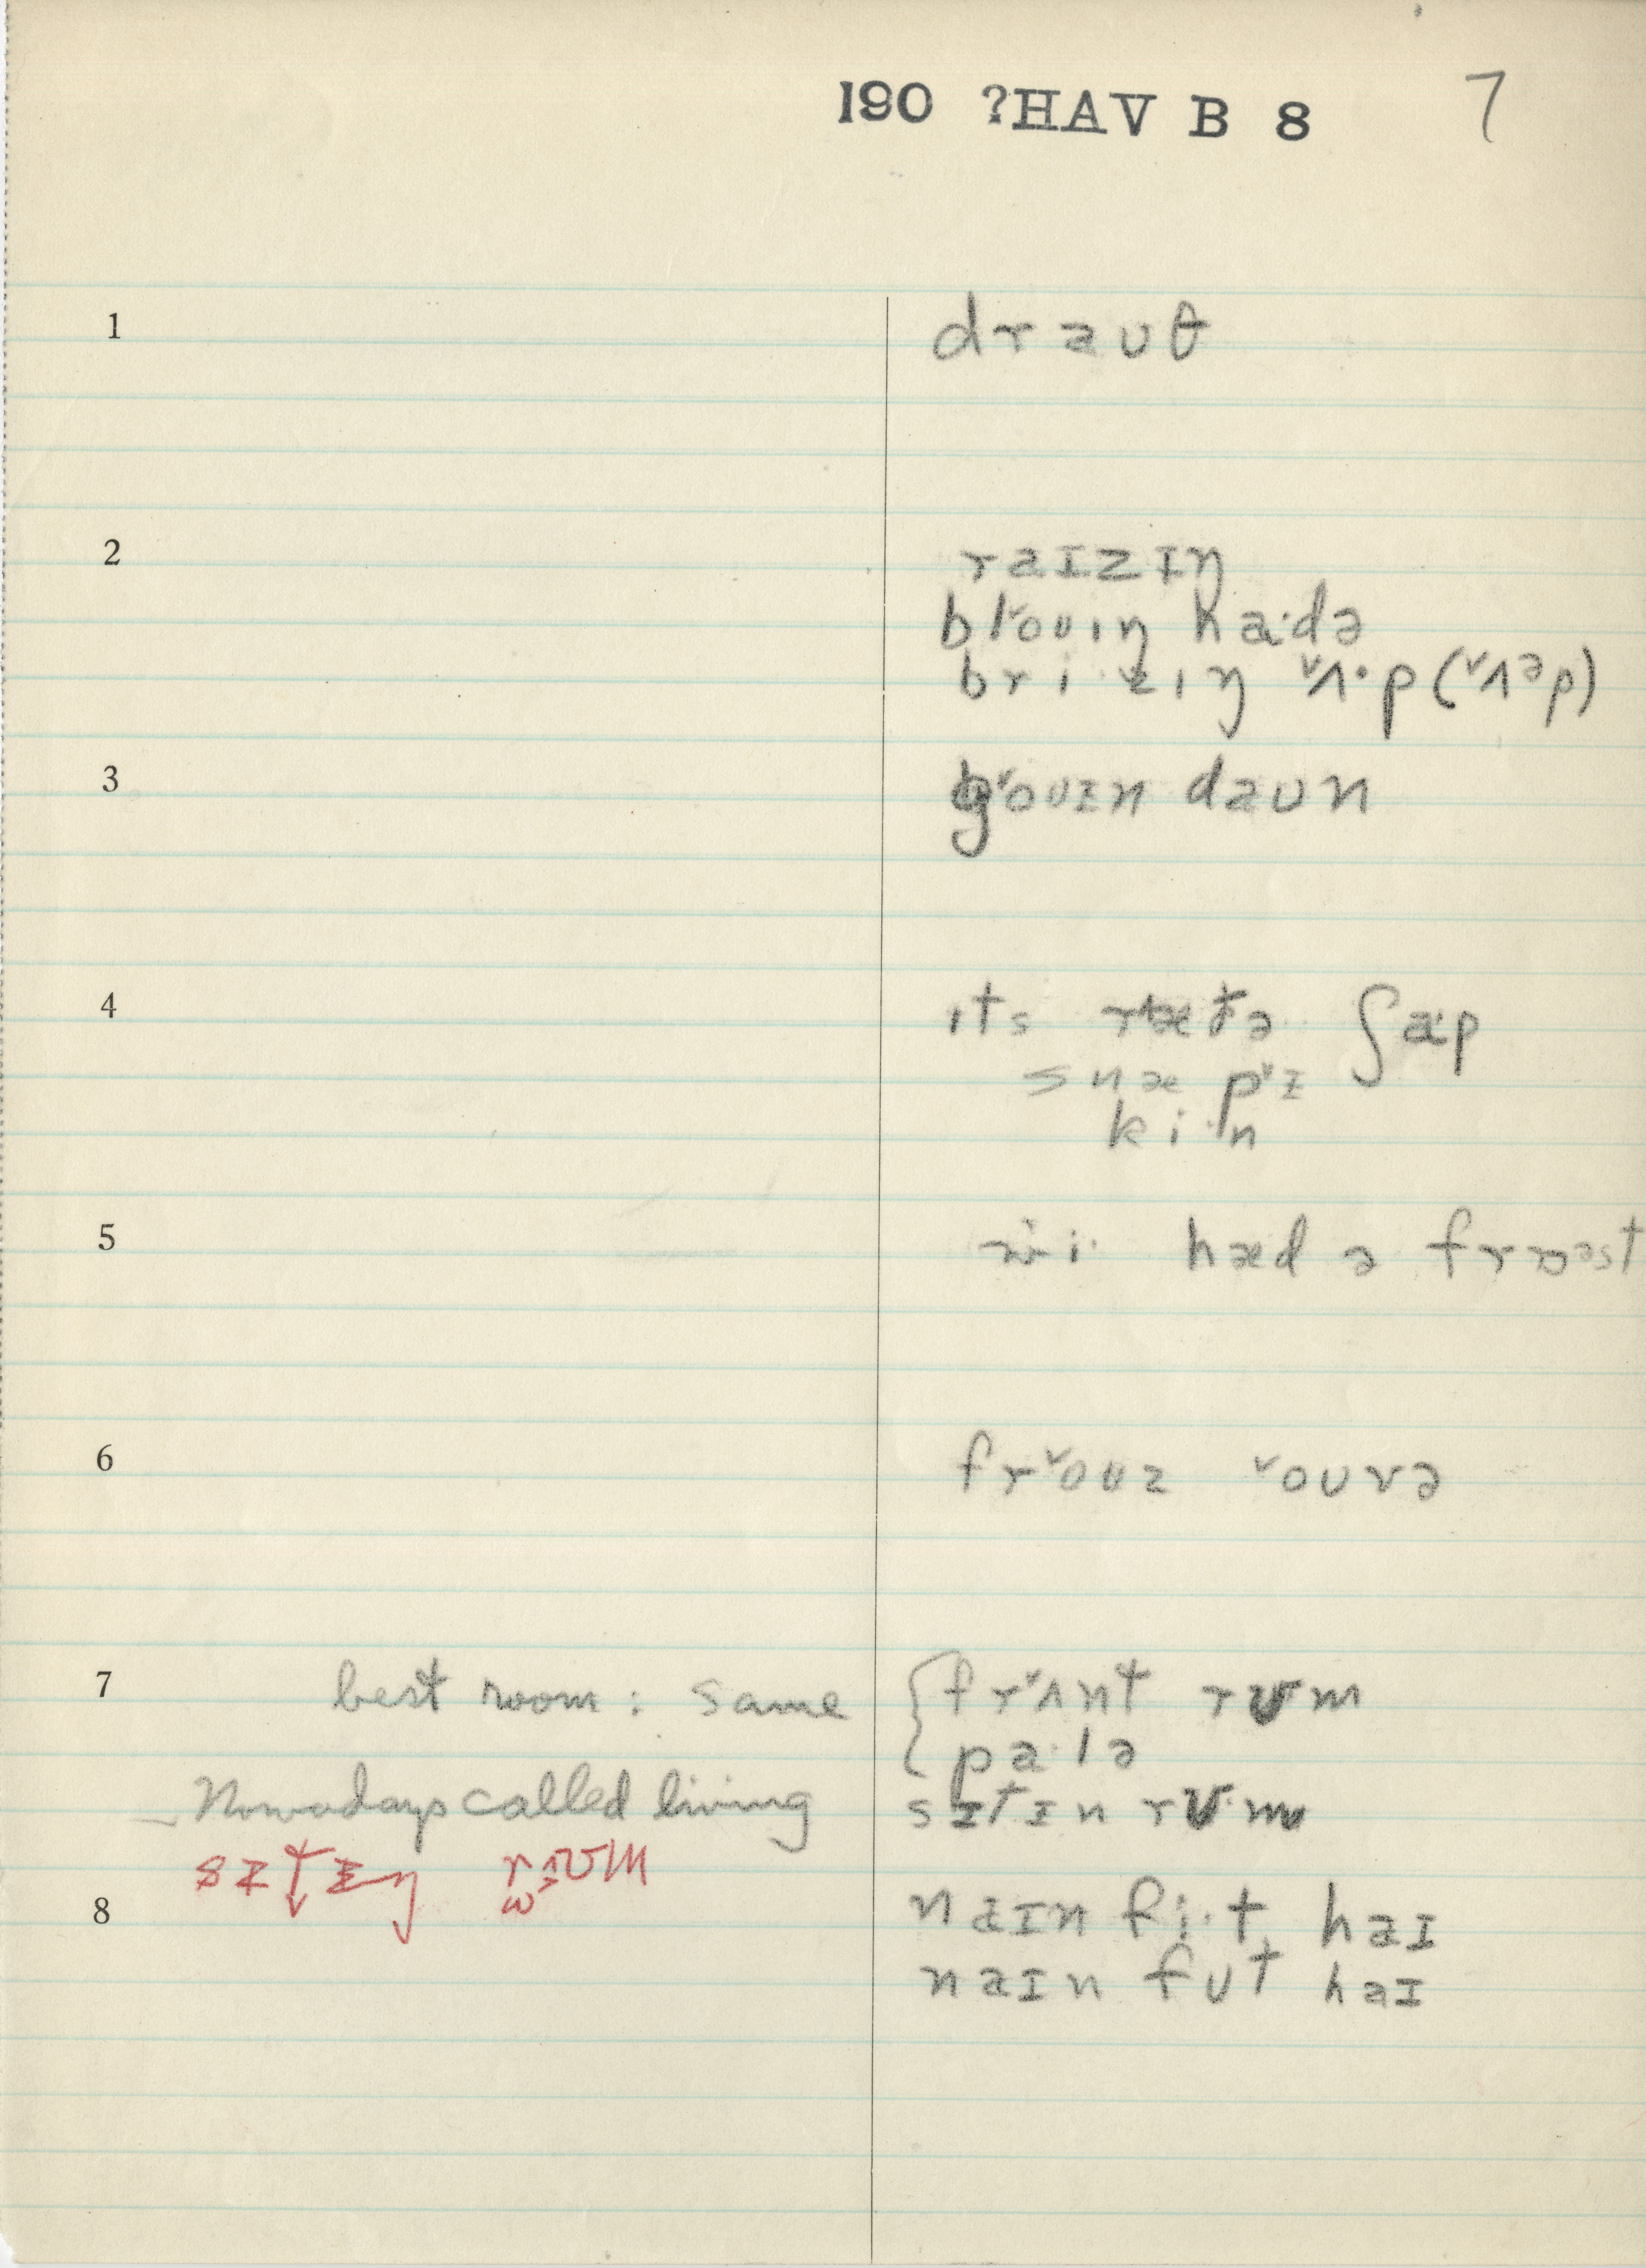 190 ?HAV B 8 7
1 draʊθ
2 raɪzɪŋ
bl˅oʊɪŋ ha·də
bri·zɪŋ ˅ʌ·p (˅ʌᵊp)
3 g˅oʊɪn daʊn
4 ɪts rætə ʃa·p
snæp˅ɪ
ki·n
5 wi· hæd ə frɒᵊst
6 fr˅oʊz ˅oʊvə
7 best room : same { fr˅ʌnt rʊm
pa·lə
Nowadays called living sɪtɪn rʊ·m
sɪtɪŋ rʊm
8 naɪn fi·t haɪ
naɪn fʊt haɪ